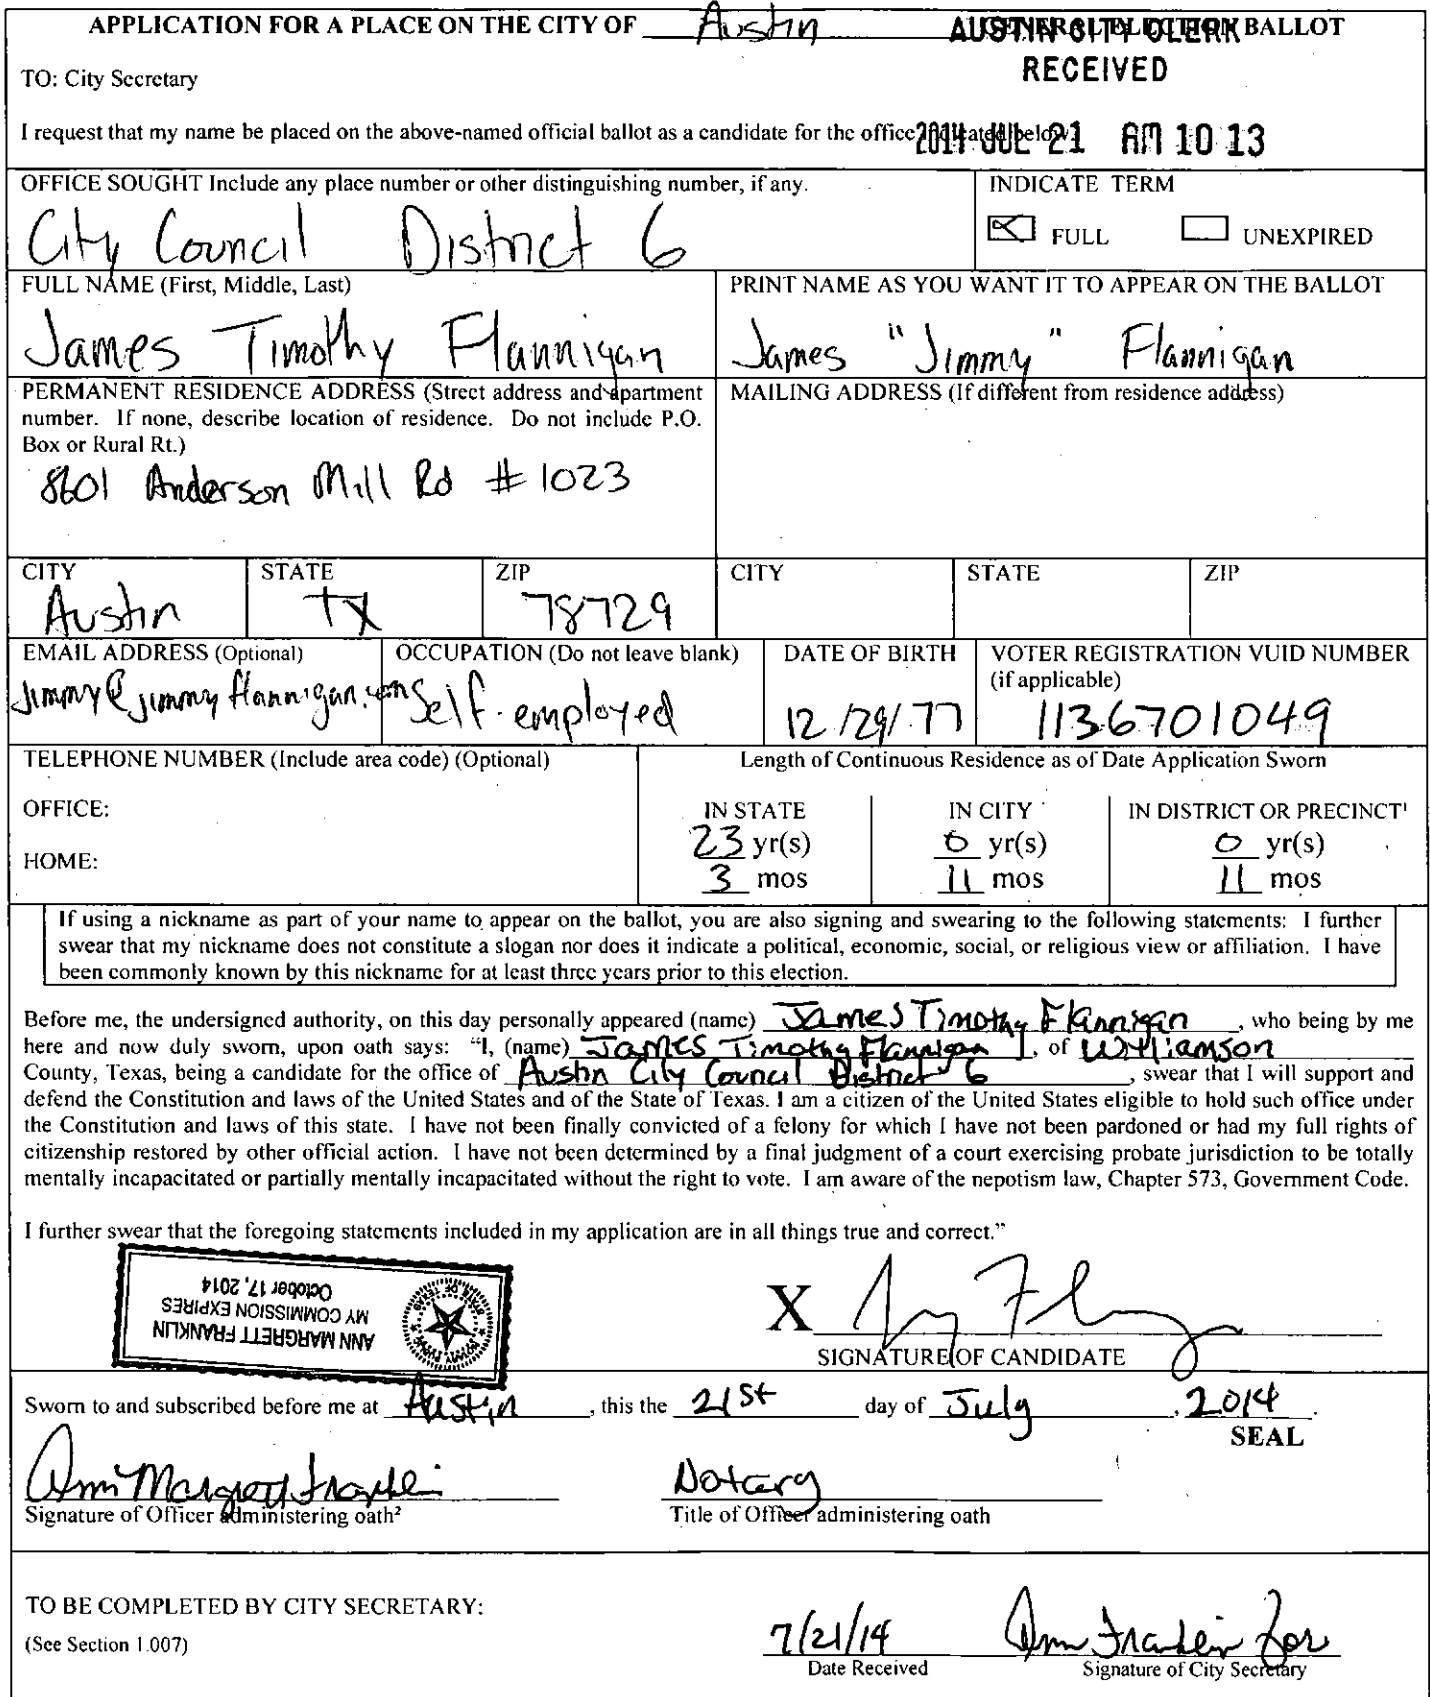 APPLICATION FOR A PLACE ON THE CITY OF Austin GENERAL ELECTION BALLOT
AUSTIN CITY CLERK
RECEIVED
TO: City Secretary
I request that my name be placed on the above-named official ballot as a candidate for the office indicated below.
2014 JUL 21 AM 10 13
OFFICE SOUGHT Include any place number or other distinguishing number, if any.
City Council District 6
INDICATE TERM
FULL UNEXPIRED
FULL NAME (First, Middle, Last)
James Timothy Flannigan
PRINT NAME AS YOU WANT IT TO APPEAR ON THE BALLOT
James "Jimmy" Flannigan
PERMANENT RESIDENCE ADDRESS (Street address and apartment
number. If none, describe location of residence. Do not include P.O.
Box or Rural Rt.)
8601 Anderson Mill Rd #1023
MAILING ADDRESS (If different from residence address)
CITY STATE ZIP CITY STATE ZIP
Austin TX 78729
EMAIL ADDRESS (Optional)
jimmy@jimmyflannigan.com
OCCUPATION (Do not leave blank)
Self-employed
DATE OF BIRTH
12/29/77
VOTER REGISTRATION VUID NUMBER
(if applicable)
1136701049
TELEPHONE NUMBER (Include area code) (Optional)
OFFICE:
HOME:
Length of Continuous Residence as of Date Application Sworn
IN STATE IN CITY IN DISTRICT OR PRECINCT¹
23 yr(s) 0 yr(s) 0 yr(s)
3 mos 11 mos 11 mos
If using a nickname as part of your name to appear on the ballot, you are also signing and swearing to the following statements: I further
swear that my nickname does not constitute a slogan nor does it indicate a political, economic, social, or religious view or affiliation. I have
been commonly known by this nickname for at least three years prior to this election.
Before me, the undersigned authority, on this day personally appeared (name) James Timothy Flannigan, who being by me
here and now duly sworn, upon oath says: "I, (name) James Timothy Flannigan, of Williamson
County, Texas, being a candidate for the office of Austin City Council District 6, swear that I will support and
defend the Constitution and laws of the United States and of the State of Texas. I am a citizen of the United States eligible to hold such office under
the Constitution and laws of this state. I have not been finally convicted of a felony for which I have not been pardoned or had my full rights of
citizenship restored by other official action. I have not been determined by a final judgment of a court exercising probate jurisdiction to be totally
mentally incapacitated or partially mentally incapacitated without the right to vote. I am aware of the nepotism law, Chapter 573, Government Code.
I further swear that the foregoing statements included in my application are in all things true and correct."
ANN MARGRETT FRANKLIN
MY COMMISSION EXPIRES
October 17, 2014
X
SIGNATURE OF CANDIDATE
Sworn to and subscribed before me at Austin, this the 21st day of July, 2014.
SEAL
Ann Margrett Franklin
Signature of Officer administering oath²
Notary
Title of Officer administering oath
TO BE COMPLETED BY CITY SECRETARY:
(See Section 1.007)
7/21/14
Date Received
Ann Franklin for
Signature of City Secretary